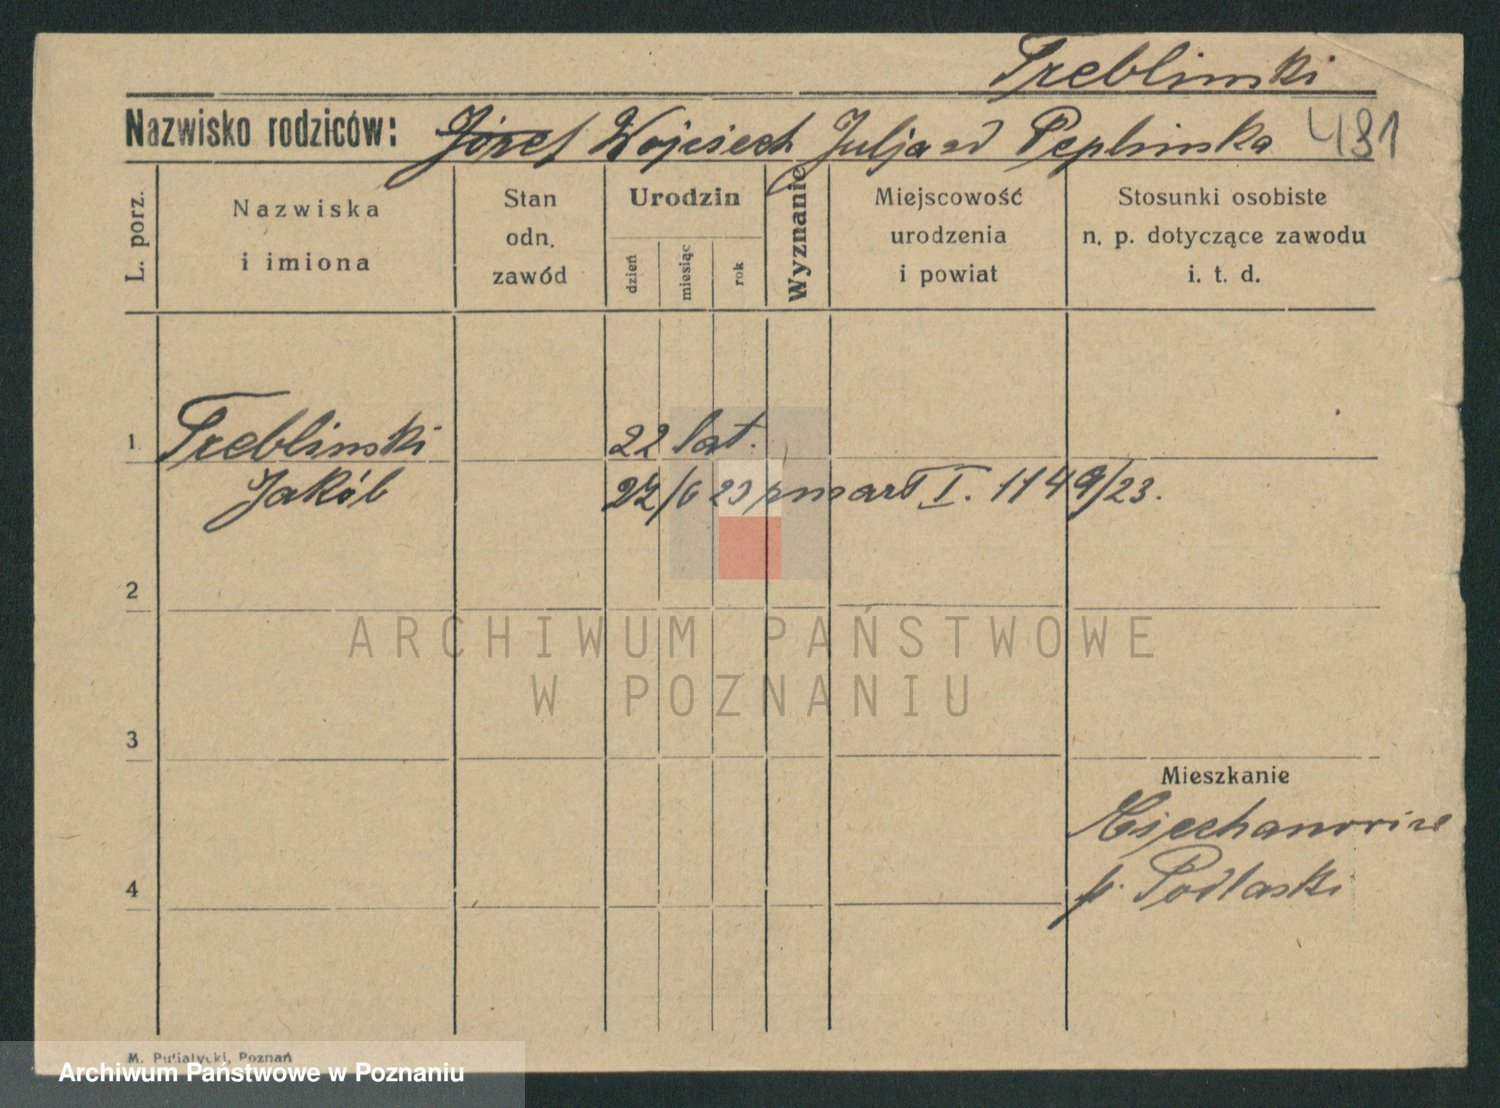 Treblinski
Nazwisko rodziców: Józef Wojciech Julja zd Peplinska 481
L. porz.
Nazwiska
i imiona
Stan
odn.
zawód
Urodzin
dzień
miesiąc
rok
Wyznanie
Miejscowość
urodzenia
i powiat
Stosunki osobiste
n. p. dotyczące zawodu
i. t. d.
1 Treblinski 22 lat.
Jakób 27/6 23 zmarł I. 1149/23.
2
ARCHIWUM PAŃSTWOWE
W POZNANIU
3
Mieszkanie
p. Podlaski
4
M. Putiatycki, Poznań
Archiwum Państwowe w Poznaniu